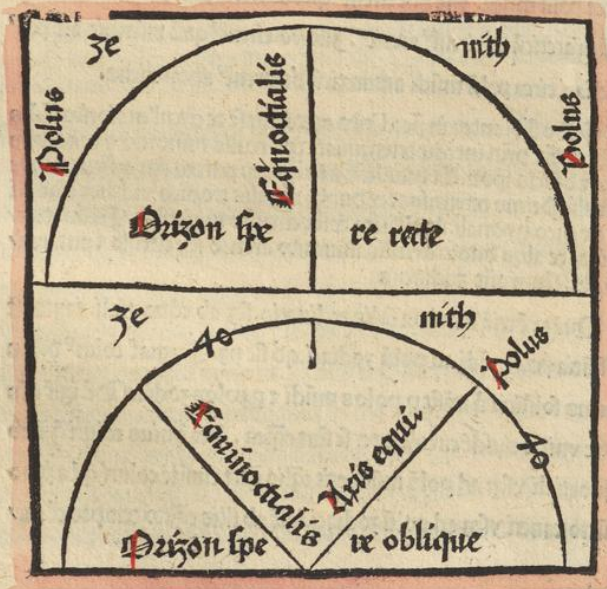 ze nith
Polus
Eqinoctialis
Polus
Orizon spe re recte
ze nith
40
Polus
Equinoctialis
Axis equi.
40
Orizon spe re oblique